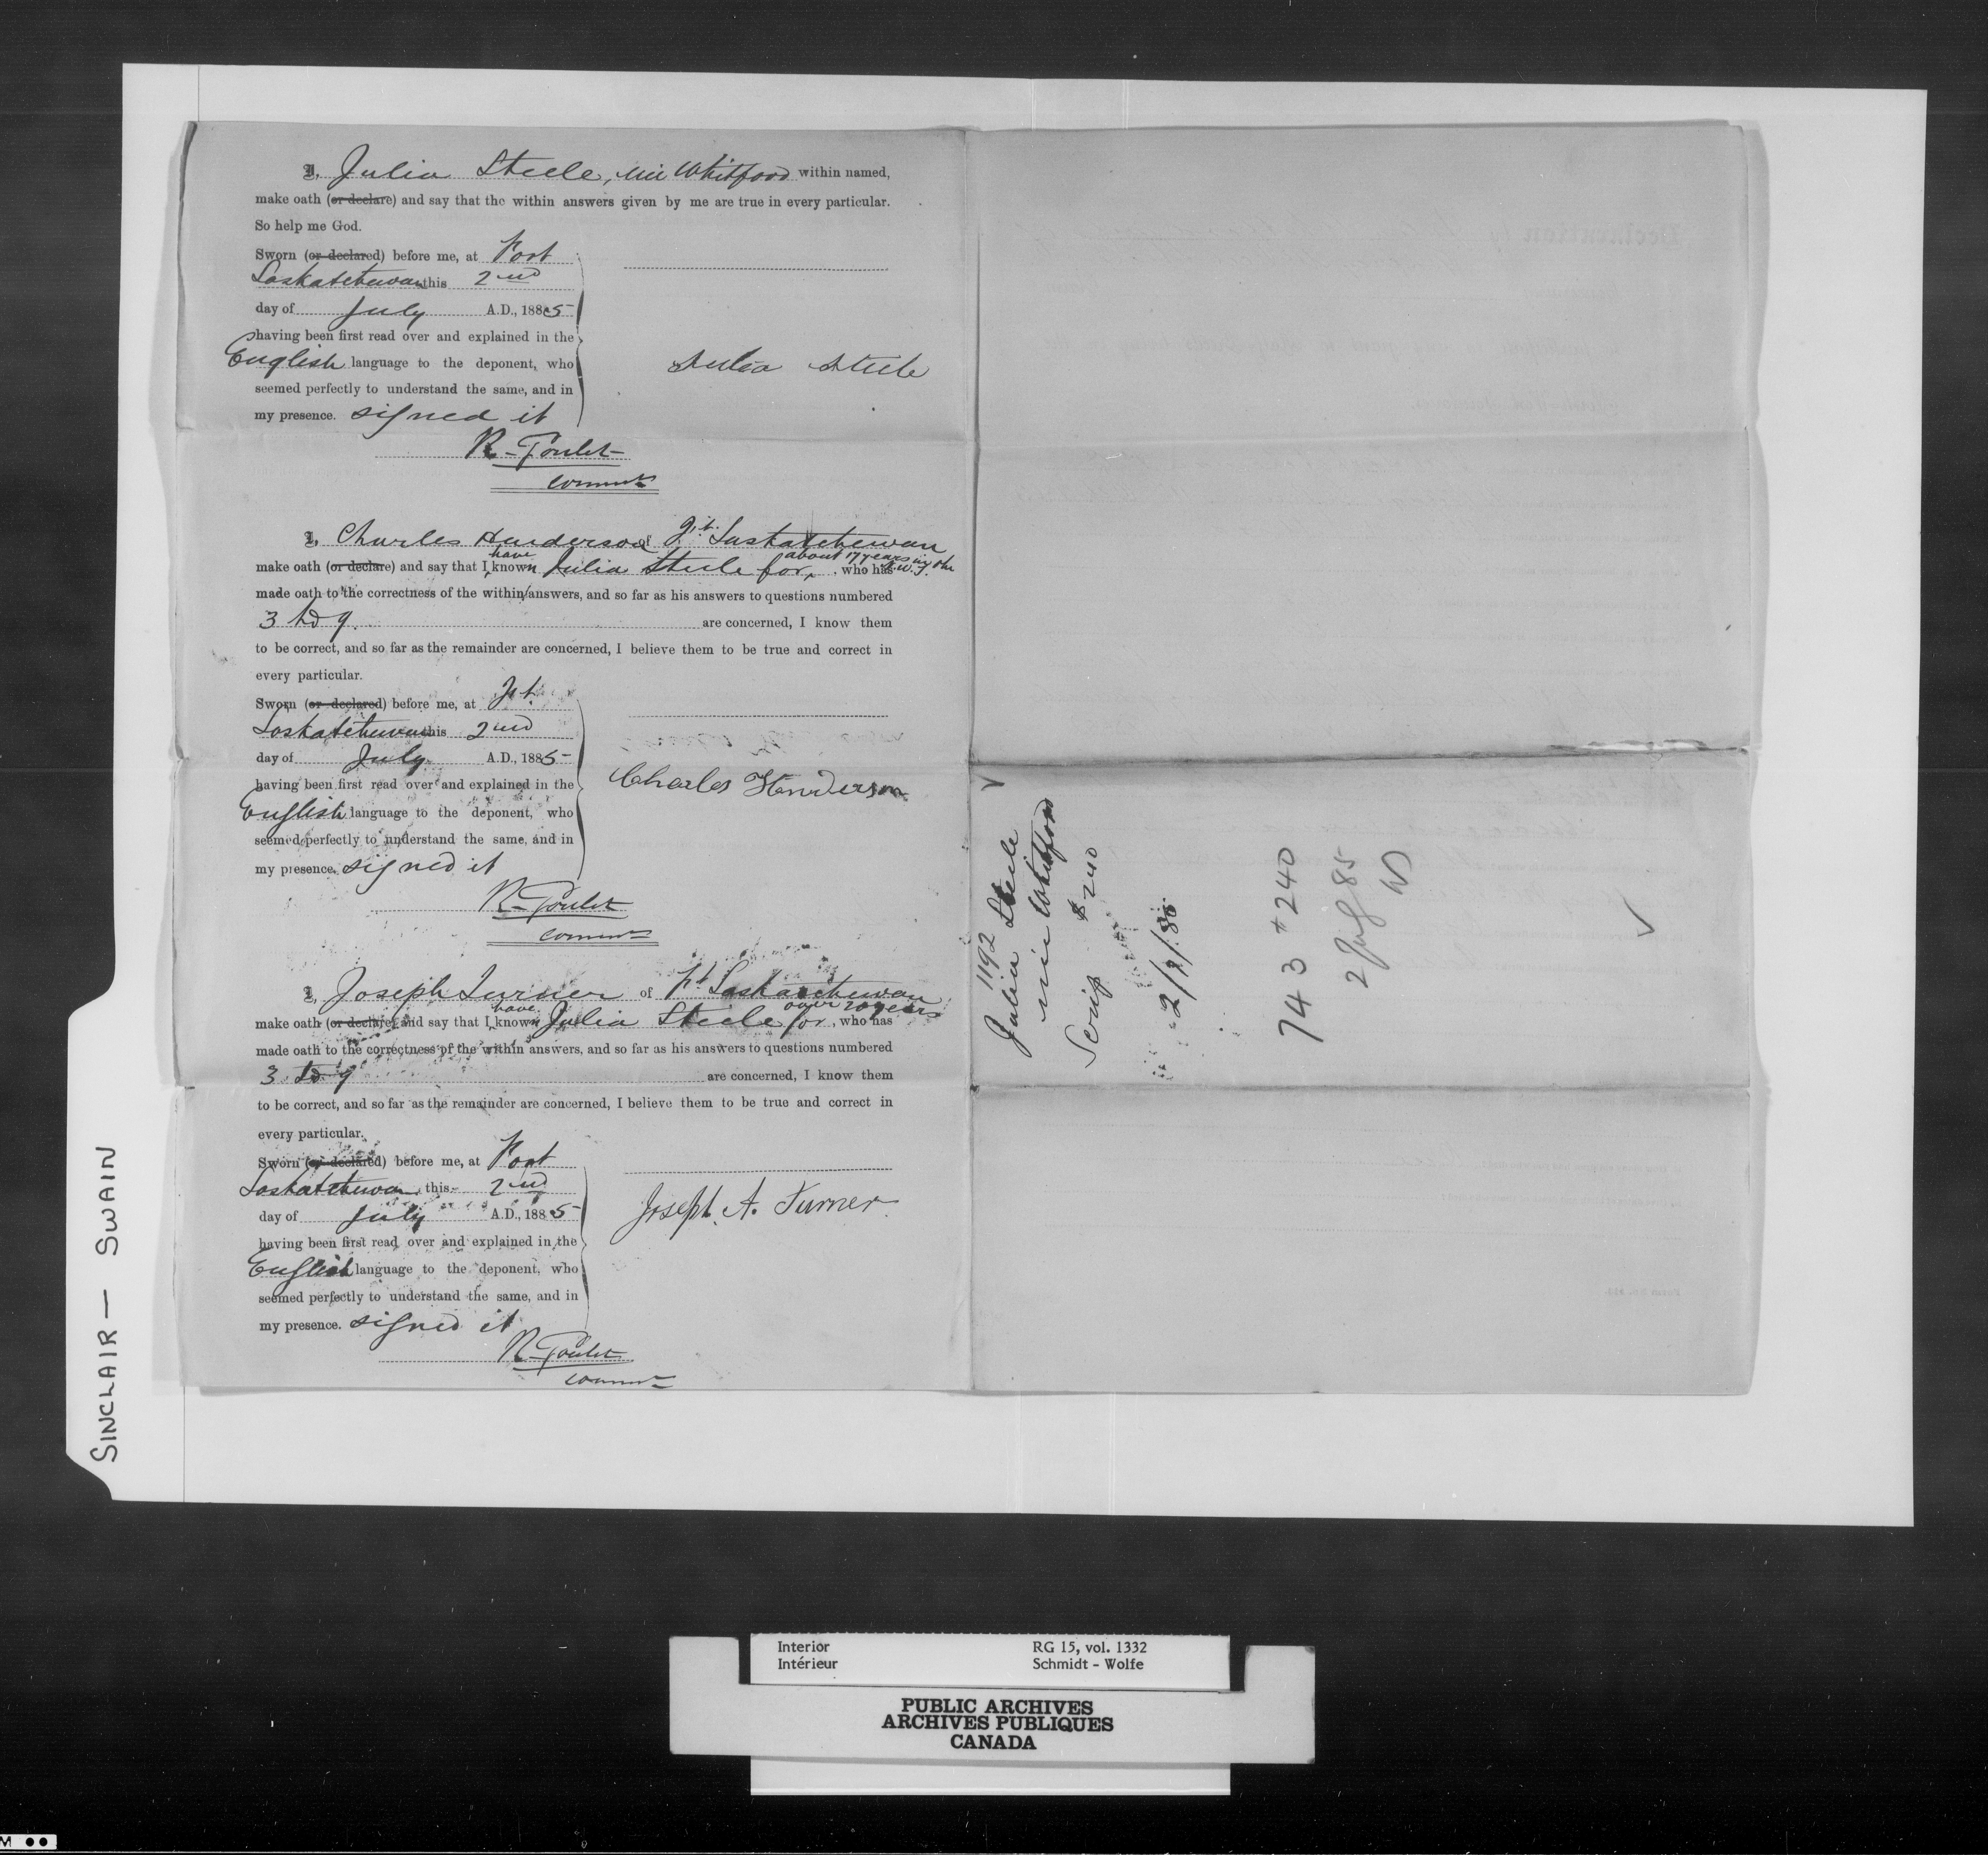 I, Julia Steele, née Whitford within named,
make oath (or declare) and say that the within answers given by me are true in every particular.
So help me God.
Sworn (or declared) before me, at Fort
Saskatchewan this 2nd
day of July A.D., 1885
having been first read over and explained in the
English language to the deponent, who
seemed perfectly to understand the same, and in
my presence. signed it
Julia Steele
R. Goulet
Commr
I, Charles Henderson of Ft. Saskatchewan
make oath (or declare) and say that I have known Julia Steele for about 17 years in the N.W.T., who has
made oath to the correctness of the within answers, and so far as his answers to questions numbered
3 to 9 are concerned, I know them
to be correct, and so far as the remainder are concerned, I believe them to be true and correct in
every particular.
Sworn (or declared) before me, at Ft.
Saskatchewan this 2nd
day of July A.D., 1885
having been first read over and explained in the
English language to the deponent, who
seemed perfectly to understand the same, and in
my presence. signed it
Charles Henderson
R. Goulet
Commr
I, Joseph Turner of Ft Saskatchewan
make oath (or declare) and say that I have known Julia Steele for over 20 years, who has
made oath to the correctness of the within answers, and so far as his answers to questions numbered
3 to 9 are concerned, I know them
to be correct, and so far as the remainder are concerned, I believe them to be true and correct in
every particular.
Sworn (or declared) before me, at Fort
Saskatchewan this 2nd
day of July A.D., 1885
having been first read over and explained in the
English language to the deponent, who
seemed perfectly to understand the same, and in
my presence. signed it
Joseph. A. Turner
R. Goulet
Commr
1192
Julia Steele
née Whitford
Scrip $240
2/7/85
743 $240
2 July 85
SINCLAIR — SWAIN
Interior
Intérieur
RG 15, vol. 1332
Schmidt - Wolfe
PUBLIC ARCHIVES
ARCHIVES PUBLIQUES
CANADA